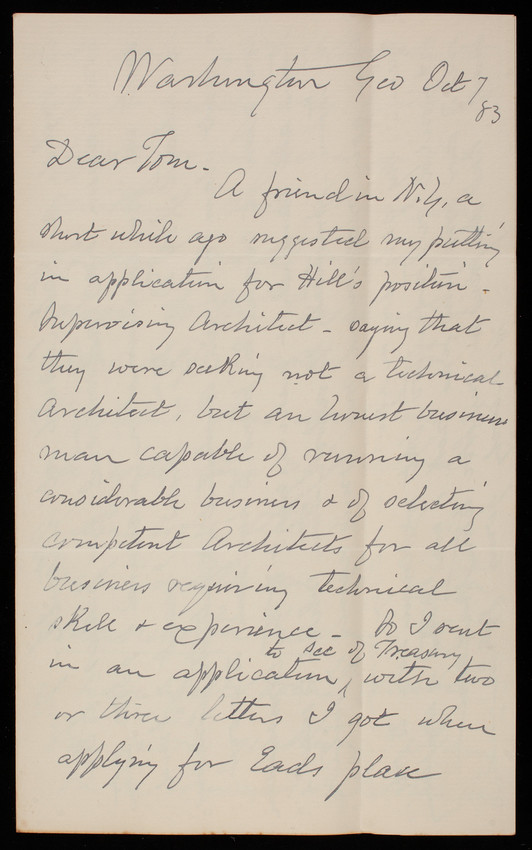 Washington Geo Oct 7
83
Dear Tom -
A friend in N.Y. a
short while ago suggested my putting
in application for Hill's position -
Supervising Architect - saying that
they were seeking not a technical
Architect, but an honest business
man capable of running a
considerable business & of selecting
competent Architects for all
business requiring technical
skill & experience - So I sent
to Sec of Treasury
in an application, with two
or three letters I got when
applying for Eads place